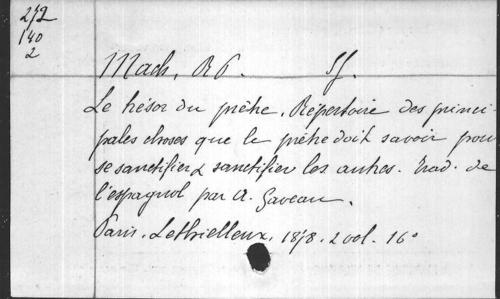 242
140
2
Mach, R.P. Sf.
Le trésor du prêtre. Répertoire des princi-
pales choses que le prêtre doit savoir pour
se sanctifier & sanctifier les autres. Trad. de
l'espagnol par A. Gaveau.
Paris. Lethielleux. 1878. 2 vol. 16°